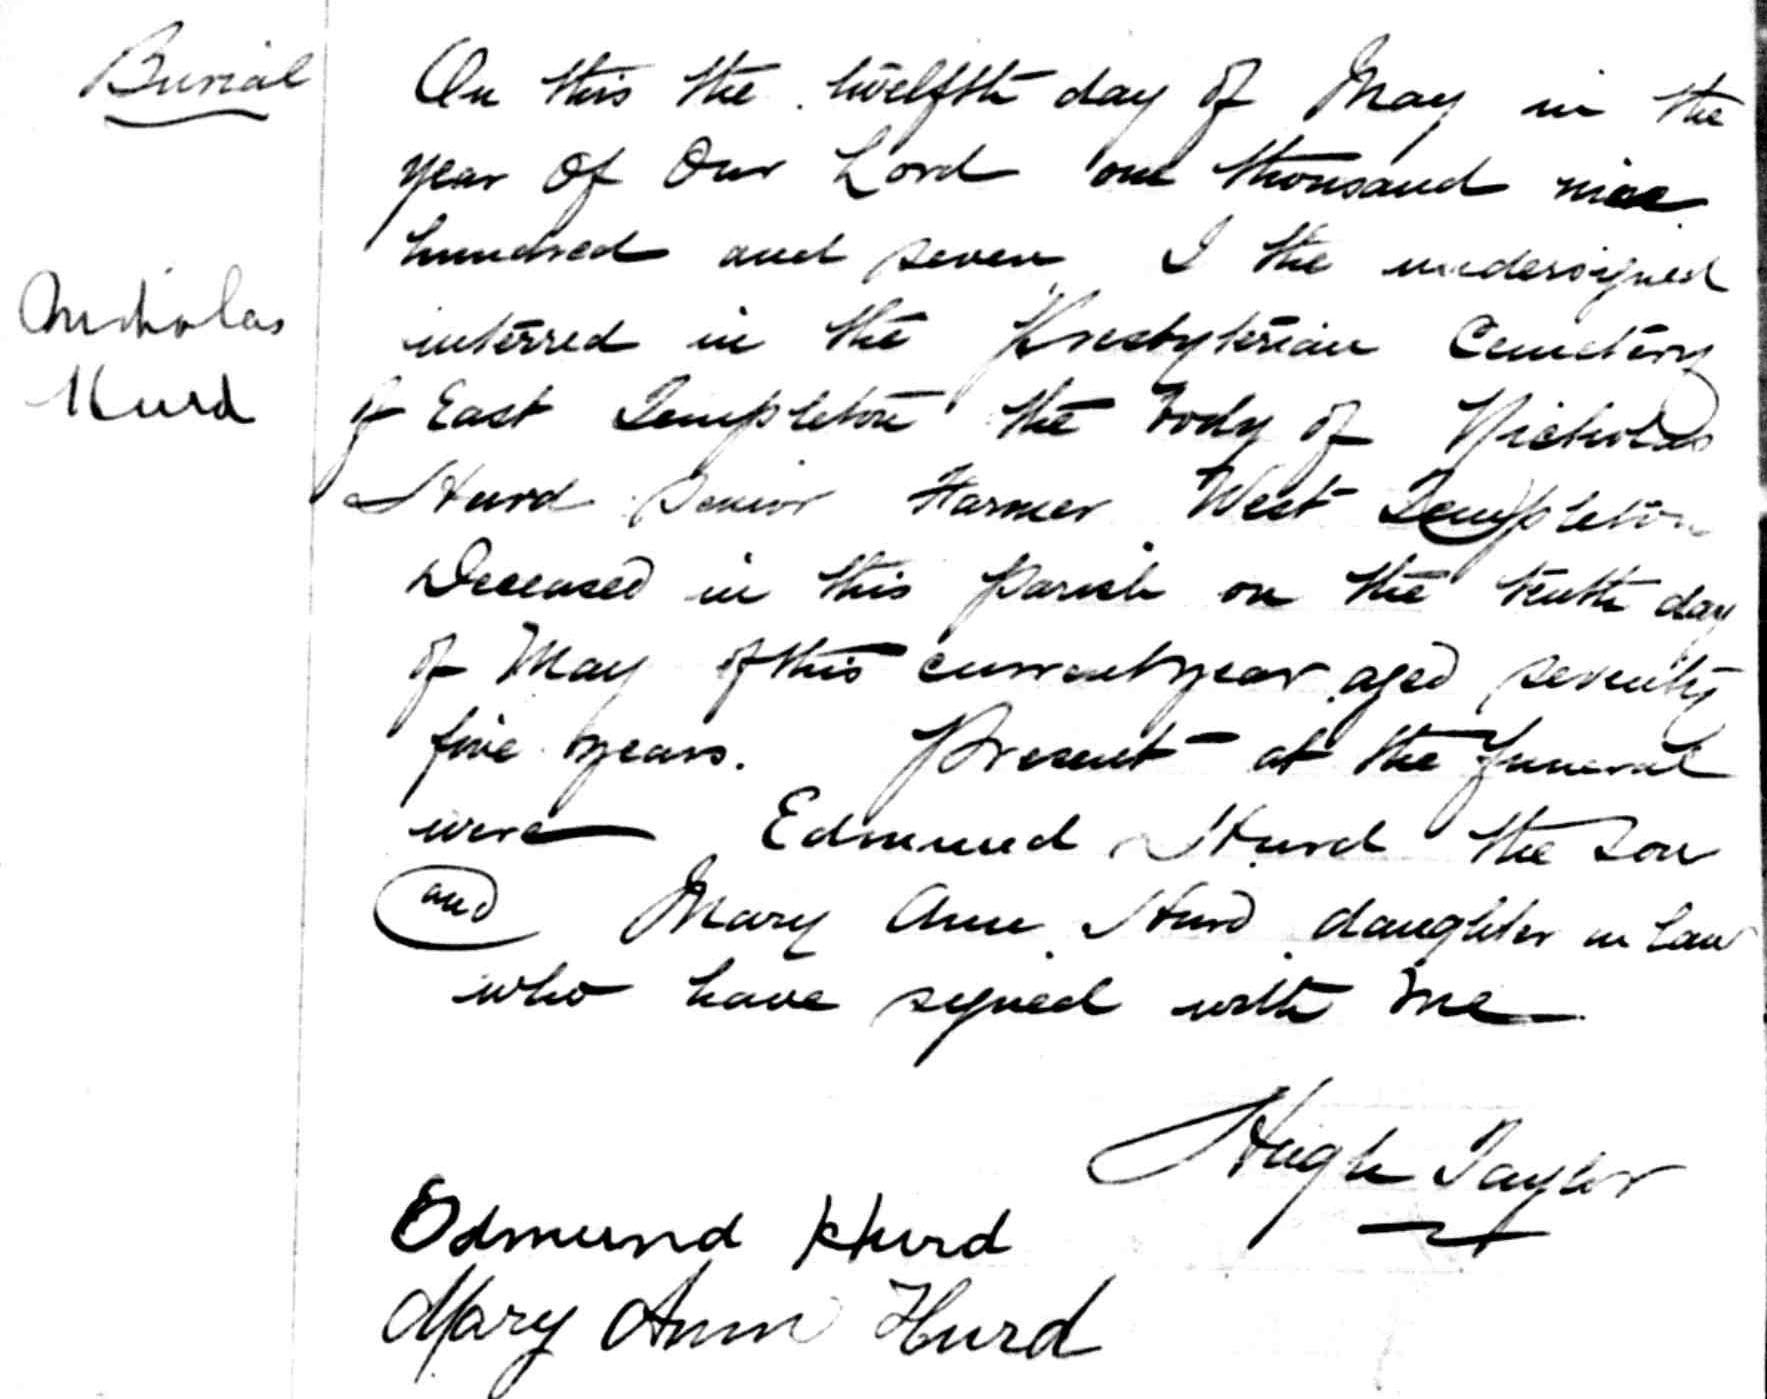 Burial
Nicholas
Hurd
On this the twelfth day of May in the
year of Our Lord one thousand nine
hundred and seven I the undersigned
interred in the Presbyterian Cemetery
of East Templeton the body of Nicholas
Hurd Senior Farmer West Templeton
Deceased in this parish on the tenth day
of May of this current year aged seventy
five years. Present at the funeral
were Edmund Hurd the son
and Mary Ann Hurd daughter in law
who have signed with me
Hugh Taylor
Edmund Hurd
Mary Ann Hurd